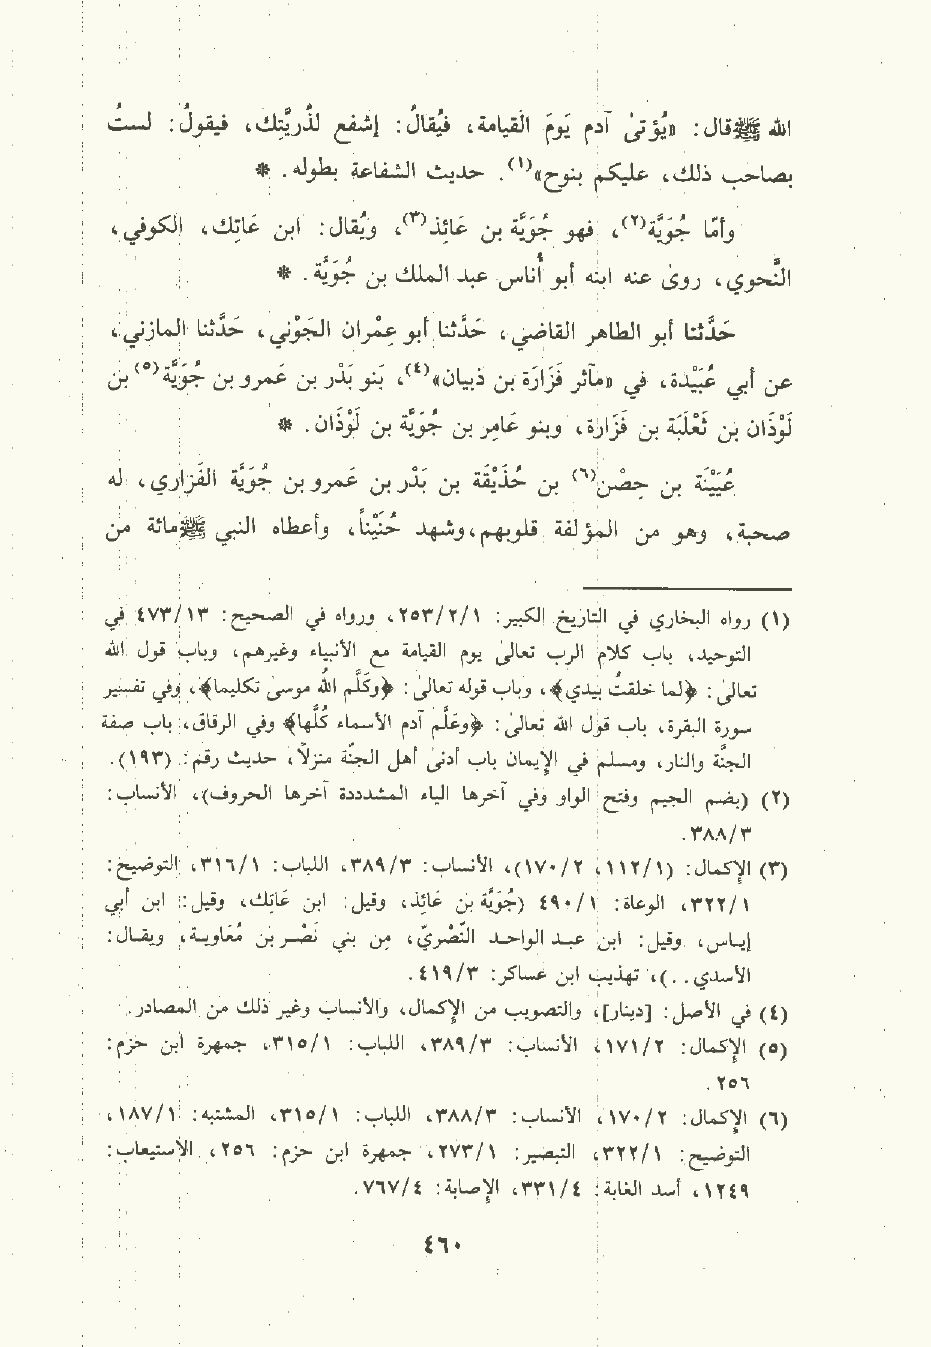 الله ﷺ قال: «يُؤتىٰ آدم يَومَ القيامة، فيُقالُ: إشفع لذُريَّتِك، فيقولُ: لستُ
بصاحب ذلك، عليكم بنوح»(١). حديث الشفاعة بطوله. *
وأمّا جُوَيَّة(٢)، فهو جُوَيَّة بن عَائِذ(٣)، ويُقال: ابن عَاتِك، الكوفي،
النَّحوي، روىٰ عنه ابنه أبو أُناس عبد الملك بن جُوَيَّة. *
حَدَّثنا أبو الطاهر القاضي، حَدَّثنا أبو عِمْران الجَوْني، حَدَّثنا المازني،
عن أبي عُبَيْدة، في «مآثر فَزَارَة بن ذبيان»(٤)، بَنو بَدْر بن عَمرو بن جُوَيَّة(٥) بن
لَوْذَان بن ثَعْلَبَة بن فَزَارة، وبنو عَامِر بن جُوَيَّة بن لَوْذَان. *
عُيَيْنَة بن حِصْن(٦) بن حُذَيْفَة بن بَدْر بن عَمرو بن جُوَيَّة الفَزاري، له
صحبة، وهو من المؤلفة قلوبهم، وشهد حُنَيْناً، وأعطاه النبي ﷺ مائة من
(١) رواه البخاري في التاريخ الكبير: ٢٥٣/٢/١، ورواه في الصحيح: ٤٧٣/١٣ في
التوحيد، باب كلام الرب تعالىٰ يوم القيامة مع الأنبياء وغيرهم، وباب قول الله
تعالىٰ: ﴿لما خلقتُ بيدي﴾، وباب قوله تعالىٰ: ﴿وكَلَّم اللهُ موسىٰ تكليما﴾، وفي تفسير
سورة البقرة، باب قول الله تعالىٰ: ﴿وعَلَّم آدم الأسماء كُلَّها﴾ وفي الرقاق، باب صفة
الجنَّة والنار، ومسلم في الإيمان باب أدنىٰ أهل الجنَّة منزلاً، حديث رقم: (١٩٣).
(٢) (بضم الجيم وفتح الواو وفي آخرها الياء المشددة آخرها آخر الحروف)، الأنساب:
٣٨٨/٣.
(٣) الإكمال: (١١٢/١، ١٧٠/٢)، الأنساب: ٣٨٩/٣، اللباب: ٣١٦/١، التوضيخ:
٣٢٢/١، الوعاة: ٤٩٠/١ (جُوَيَّة بن عَائِذ، وقيل: ابن عَاتِك، وقيل: ابن أبي
إياس، وقيل: ابن عبد الواحد النَّصْريّ، من بني نَصْر بن مُعَاوية، ويقال:
الأسدي..)، تهذيب ابن عساكر: ٤١٩/٣.
(٤) في الأصل: [دينار]، والتصويب من الإكمال، والأنساب وغير ذلك من المصادر.
(٥) الإكمال: ١٧١/٢، الأنساب: ٣٨٩/٣، اللباب: ٣١٥/١، جمهرة ابن حزم:
٢٥٦.
(٦) الإكمال: ١٧٠/٢، الأنساب: ٣٨٨/٣، اللباب: ٣١٥/١، المشتبه: ١٨٧/١،
التوضيح: ٣٢٢/١، التبصير: ٢٧٣/١، جمهرة ابن حزم: ٢٥٦، الأستيعاب:
١٢٤٩، أسد الغابة: ٣٣١/٤، الإصابة: ٧٦٧/٤.
٤٦٠